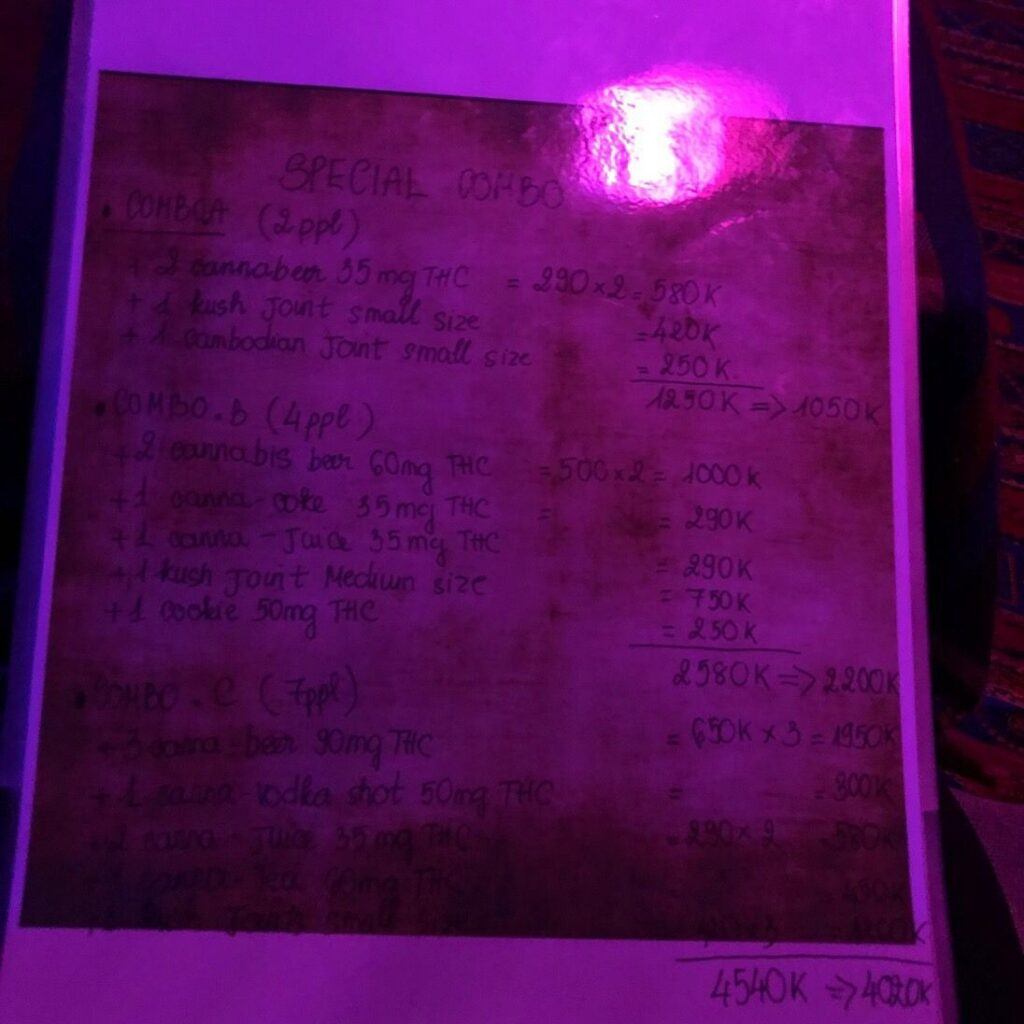 SPECIAL COMBO
• COMBO A (2ppl)
+ 2 cannabeer 35mg THC = 290×2 = 580K
+ 1 kush Joint small size = 420K
+ 1 cambodian Joint small size = 250K
1250K => 1050K
• COMBO.B (4ppl)
+2 cannabis beer 60mg THC = 500×2 = 1000K
+1 canna-coke 35mg THC = = 290K
+1 canna-Juice 35mg THC = 290K
+1 kush Joint Medium size = 750K
+1 cookie 50mg THC = 250K
2580K => 2200K
• COMBO.C (7ppl)
+ 3 canna-beer 90mg THC = 650K × 3 = 1950K
+ 1 canna-vodka shot 50mg THC = = 300K
canna-Juice 35mg THC = 290×2 580K
canna-Tea 60mg THC
Joint small size
4540K => 4020K